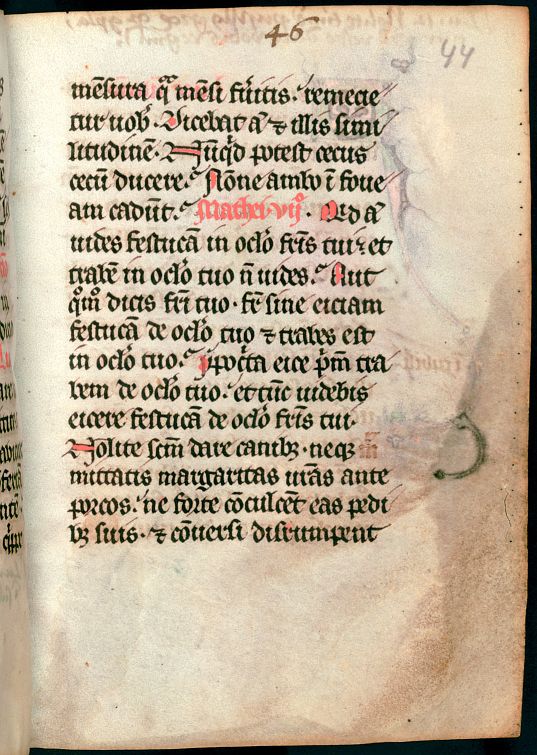 46
44
mēsura qͣ mēsi fūitis. remecie
tur uobꝫ. Dicebat aͫ ⁊ illis simi
litudinē. Nūqͥd potest cecus
cecū ducere. Nōne ambo ī foue
am cadūt. Mathei. vijͦ. Qͥd aͫ
uides festucā in oclo fr̄is tui. et
trabē in oclo tuo n̄ uides. Aut
qͦm dicis fr̄i tuo. fr̄ sine eiciam
festucā de oclo tuo ⁊ trabes est
in oclo tuo. ypocͥta eice pͥm tra
bem de oclo tuo. et tūc uidebis
eicere festucā de oclo fr̄is tui.
Nolite scm̄ dare canibꝫ. neqꝫ
mittatis margaritas ur̄as ante
porcos. ne forte cōculcēt eas pedi
bꝫ suis. ⁊ cōuersi disrumpent